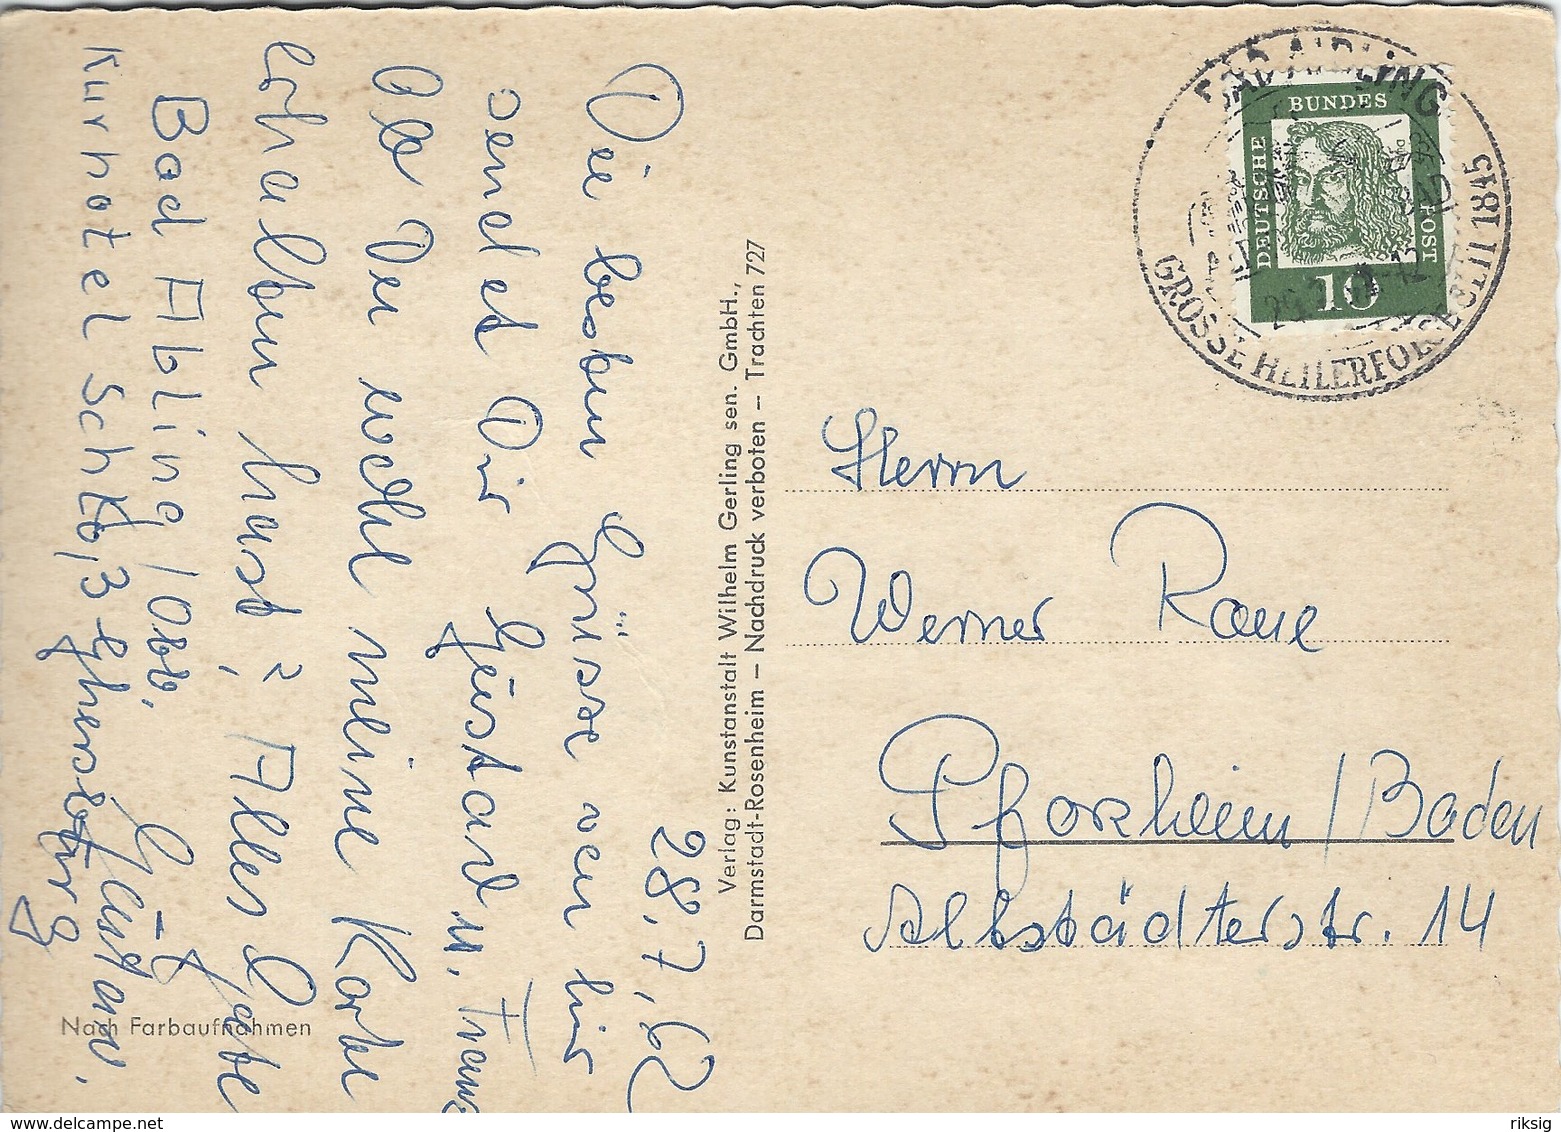 28.7.62
Die besten Grüsse von hier
sendet Dir Gustav u. Franz
Ob Du wohl meine Karte
erhalten hast? Alles Gute
Gustav.
Bad Aibling/Obb.
Kurhotel Schloß
Nach Farbaufnahmen
Verlag: Kunstanstalt Wilhelm Gerling sen. GmbH.,
Darmstadt-Rosenheim – Nachdruck verboten – Trachten 727
BAD AIBLING
GROSSE HEILERFOLGE SEIT 1845
DEUTSCHE
BUNDES
POST
10
Herrn
Werner
Pforzheim/Baden
Altstädterstr. 14
www.delcampe.net
riksig